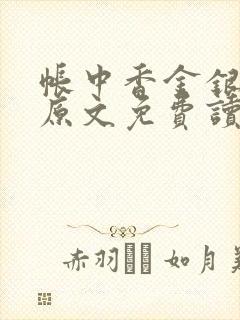 帳中香金銀
原文免費讀
赤羽 如月美